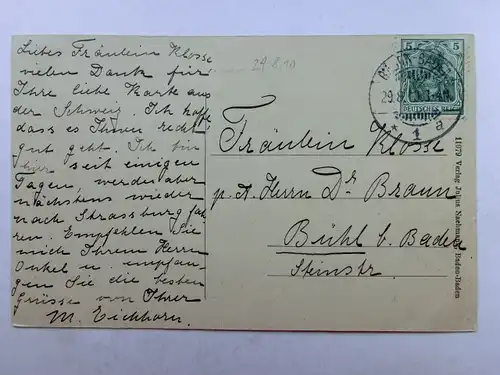 Liebes Fräulein Klosse
vielen Dank für
Ihre liebe Karte aus
der Schweiz. Ich hoffe
dass es Ihnen recht
gut geht. Ich bin
hier seit einigen
Tagen, werde aber
nächstens wieder
nach Strassburg fah
ren. Empfehlen Sie
mich Ihrem Herrn
Onkel u. empfan-
gen Sie die besten
Grüsse von Ihrer
M. Eichhorn.
29.8.10
5 5
DEUTSCHES REICH
29.8.
* 1 a
Fräulein Klosse
p. A. Herrn Dr Braun
Bühl b. Baden
Steinstr.
11079 Verlag Julius Baden-Baden